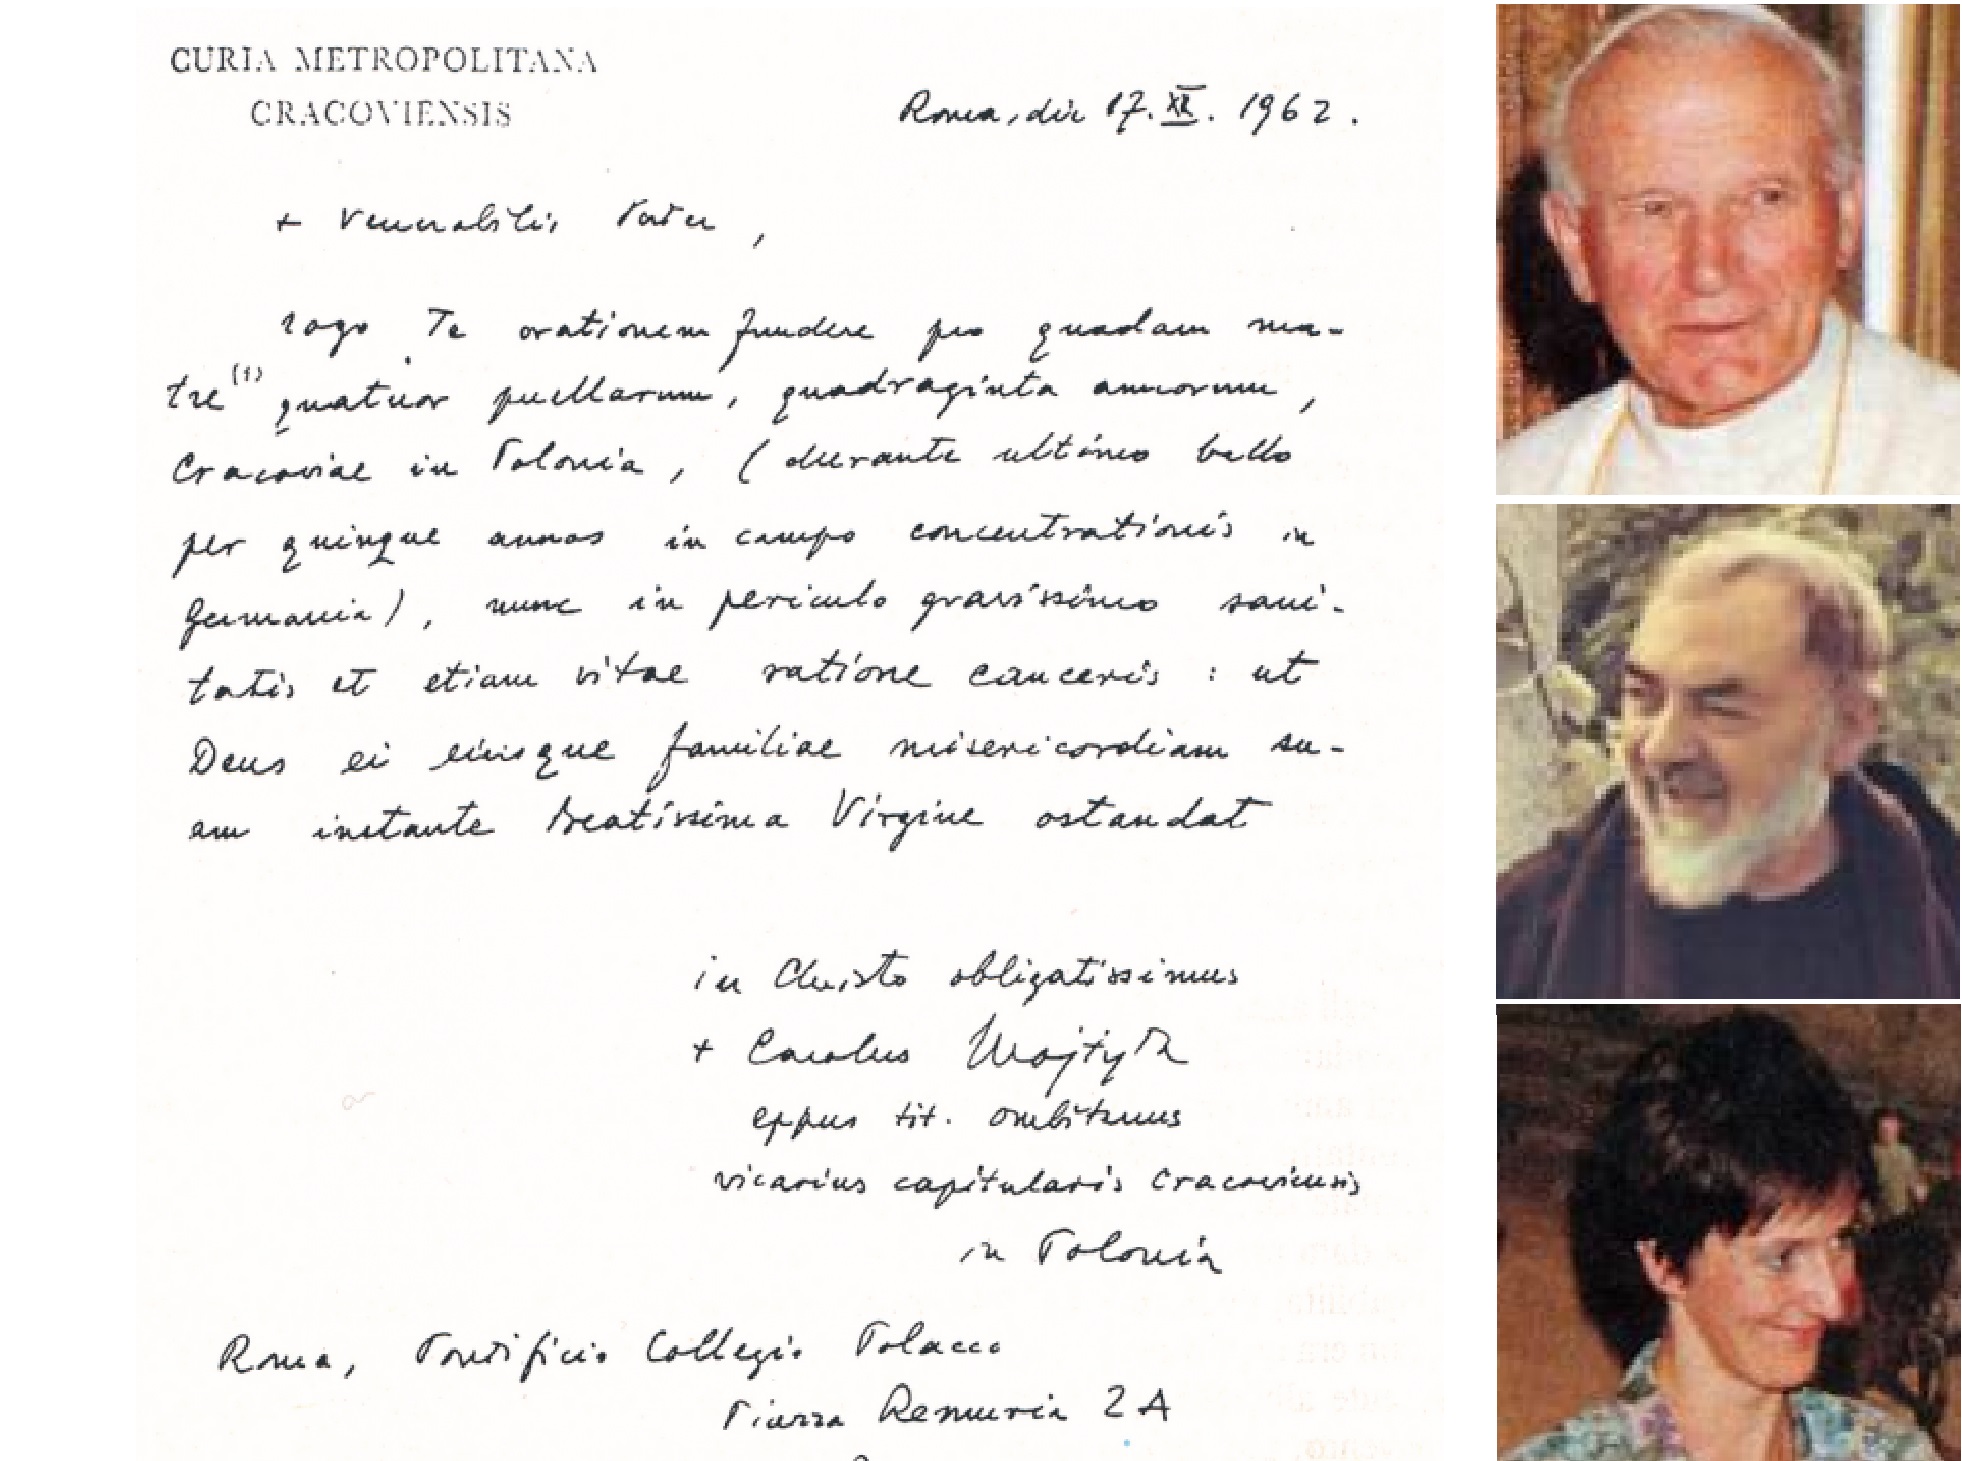 CURIA METROPOLITANA
CRACOVIENSIS
Roma, die 17. XI. 1962.
+ Venerabilis Pater,
rogo Te orationem fundere pro quadam ma-
tre (1) quatuor puellarum, quadraginta annorum,
Cracoviae in Polonia, (durante ultimo bello
per quinque annos in campo concentrationis in
Germania), nunc in periculo gravissimo sani-
tatis et etiam vitae ratione canceris : ut
Deus ei eiusque familiae misericordiam su-
am instante Beatissima Virgine ostandat
in Christo obligatissimus
+ Carolus Wojtyła
eppus tit. Ombitanus
vicarius capitularis Cracoviensis
in Polonia
Roma, Pontificio Collegio Polacco
Piazza Remuria 2A